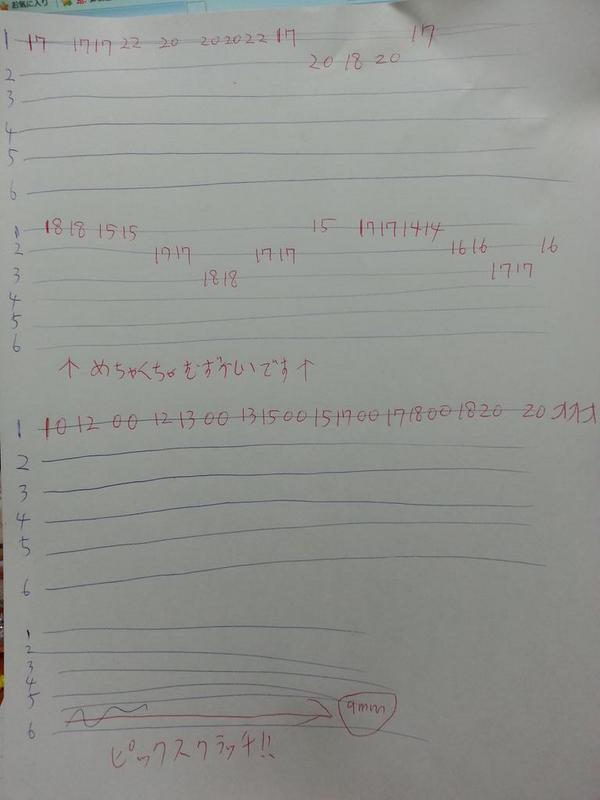 お気に入り
1 17 17 17 22 20 20 20 22 17 17
2 20 18 20
3
4
5
6
1 18 18 15 15 15 17 17 14 14
2 17 17 17 17 16 16 16
3 18 18 17 17
4
5
6
↑ めちゃくちゃむずかしいです ↑
1 10 12 0 0 12 13 0 0 13 15 0 0 15 17 0 0 17 18 0 0 18 20 20
2
3
4
5
6
1
2
3
4
5
6
ピックスクラッチ!!